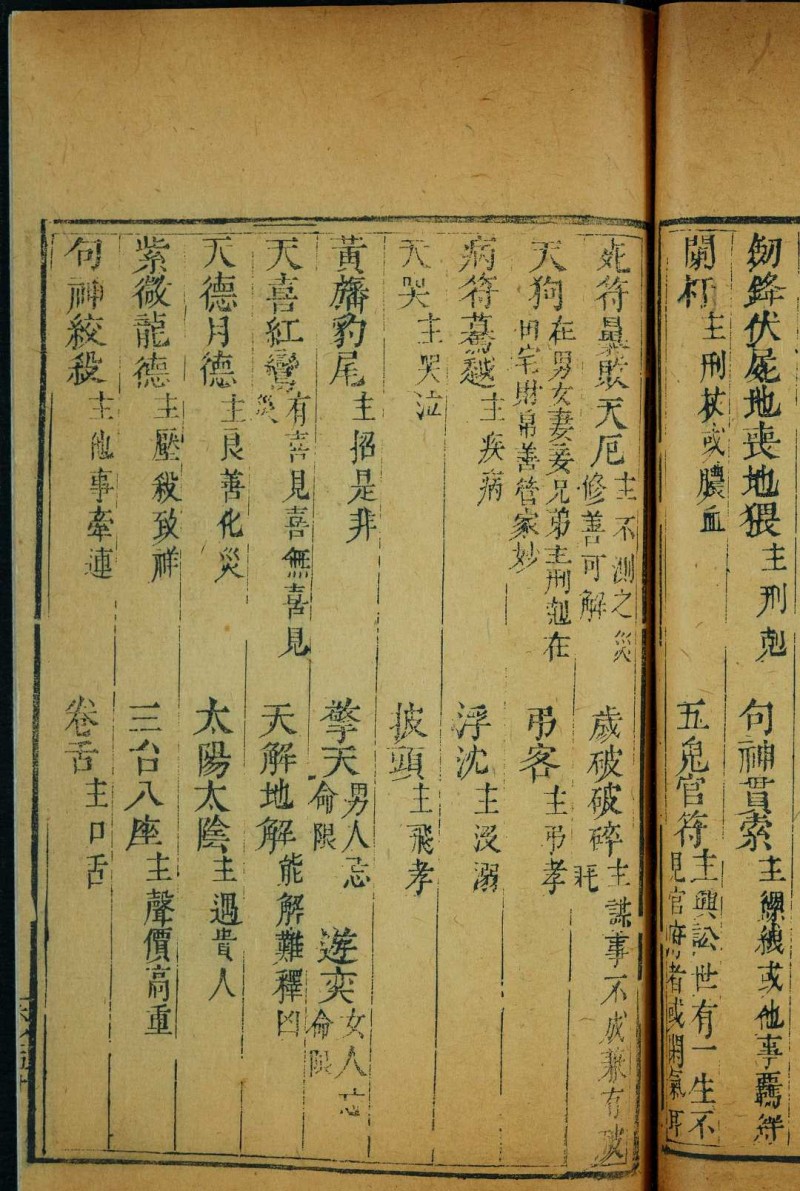 劒鋒伏屍地喪地猥主刑尅　句神貫索主縲絏或他事羈絆
闌杆主刑杖或膿血　五鬼官符主興訟世有一生不見官府者或閑氣耳
死符暴敗天厄主不測之災修善可解　歲破破碎主謀事不成兼有破耗
天狗在男女妻妾兄弟主刑尅在田宅財帛善管家妙　弔客主弔孝
病符驀越主疾病　浮沈主沒溺
天哭主哭泣　披頭主飛孝
黃旛豹尾主招是非　擎天男人忌命限　遊奕女人忌命限
天喜紅鸞有喜見喜無喜見災　天解地解能解難釋凶
天德月德主良善化災　太陽太陰主遇貴人
紫微龍德主壓殺致祥　三台八座主聲價高重
句神絞殺主他事牽連　卷舌主口舌